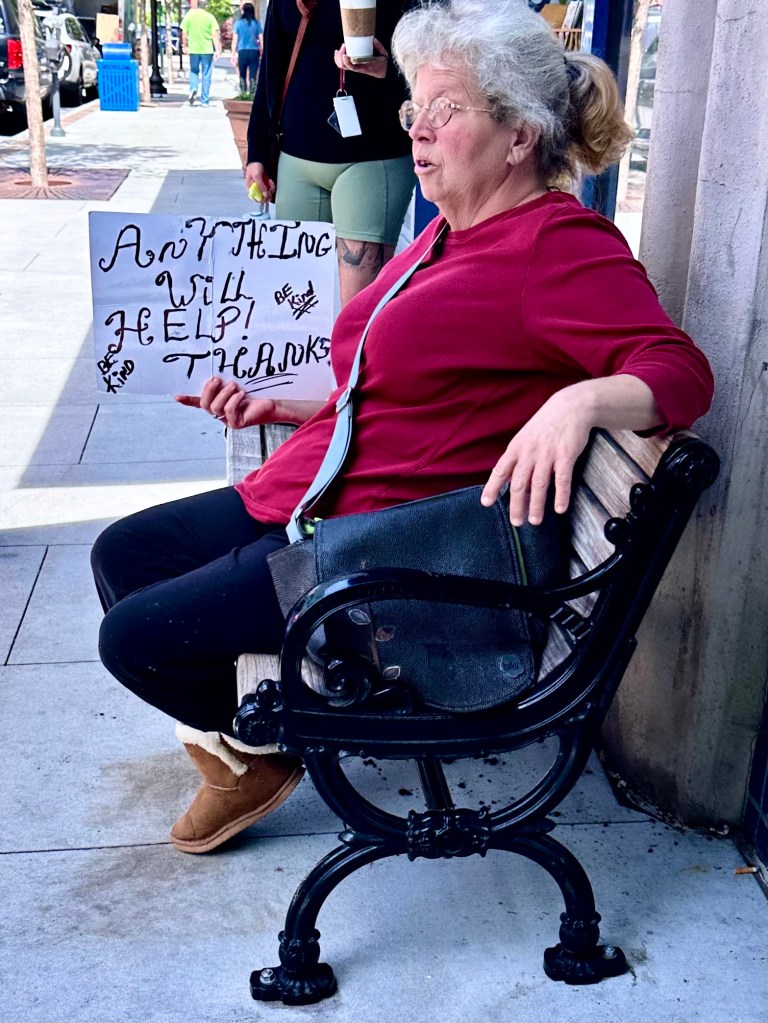 AnYTHING
WiLL
BE
Kind
HELP!
THANKS
BE
KIND